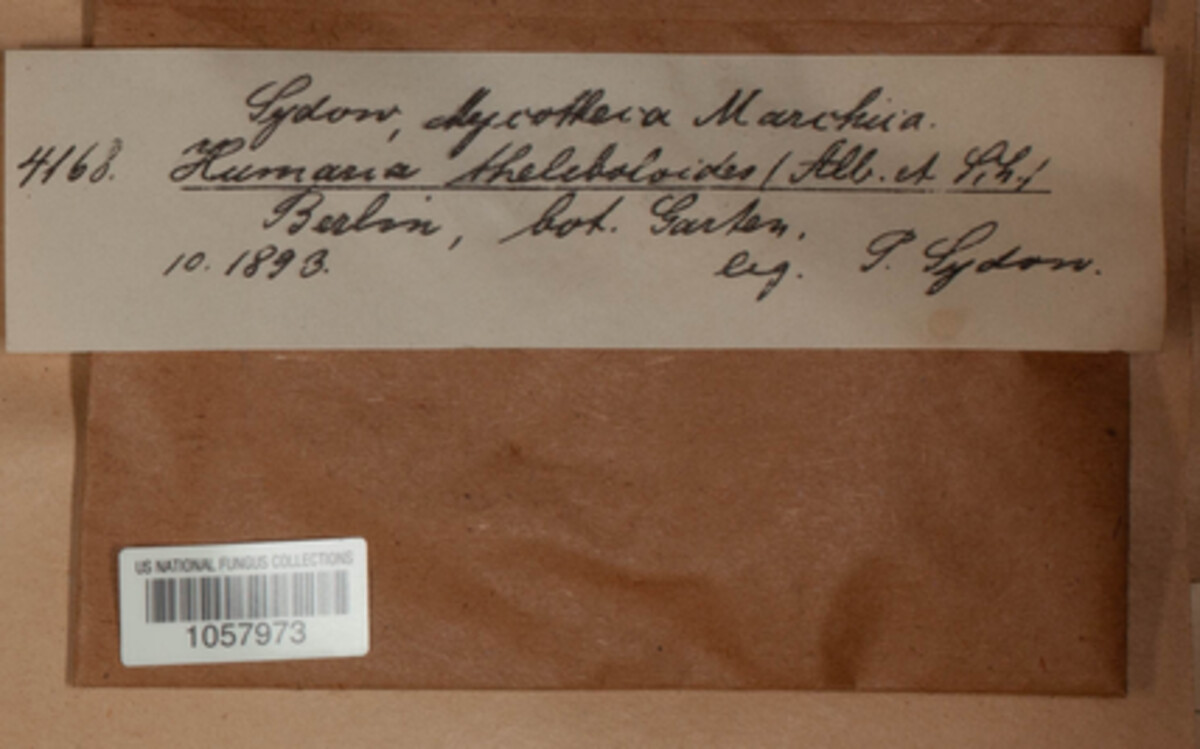 Sydow, Mycotheca Marchica.
4168. Humaria theleboloides (Alb. et Sch.)
Berlin, bot. Garten.
10. 1893. leg. P. Sydow.
US NATIONAL FUNGUS COLLECTIONS
1057973